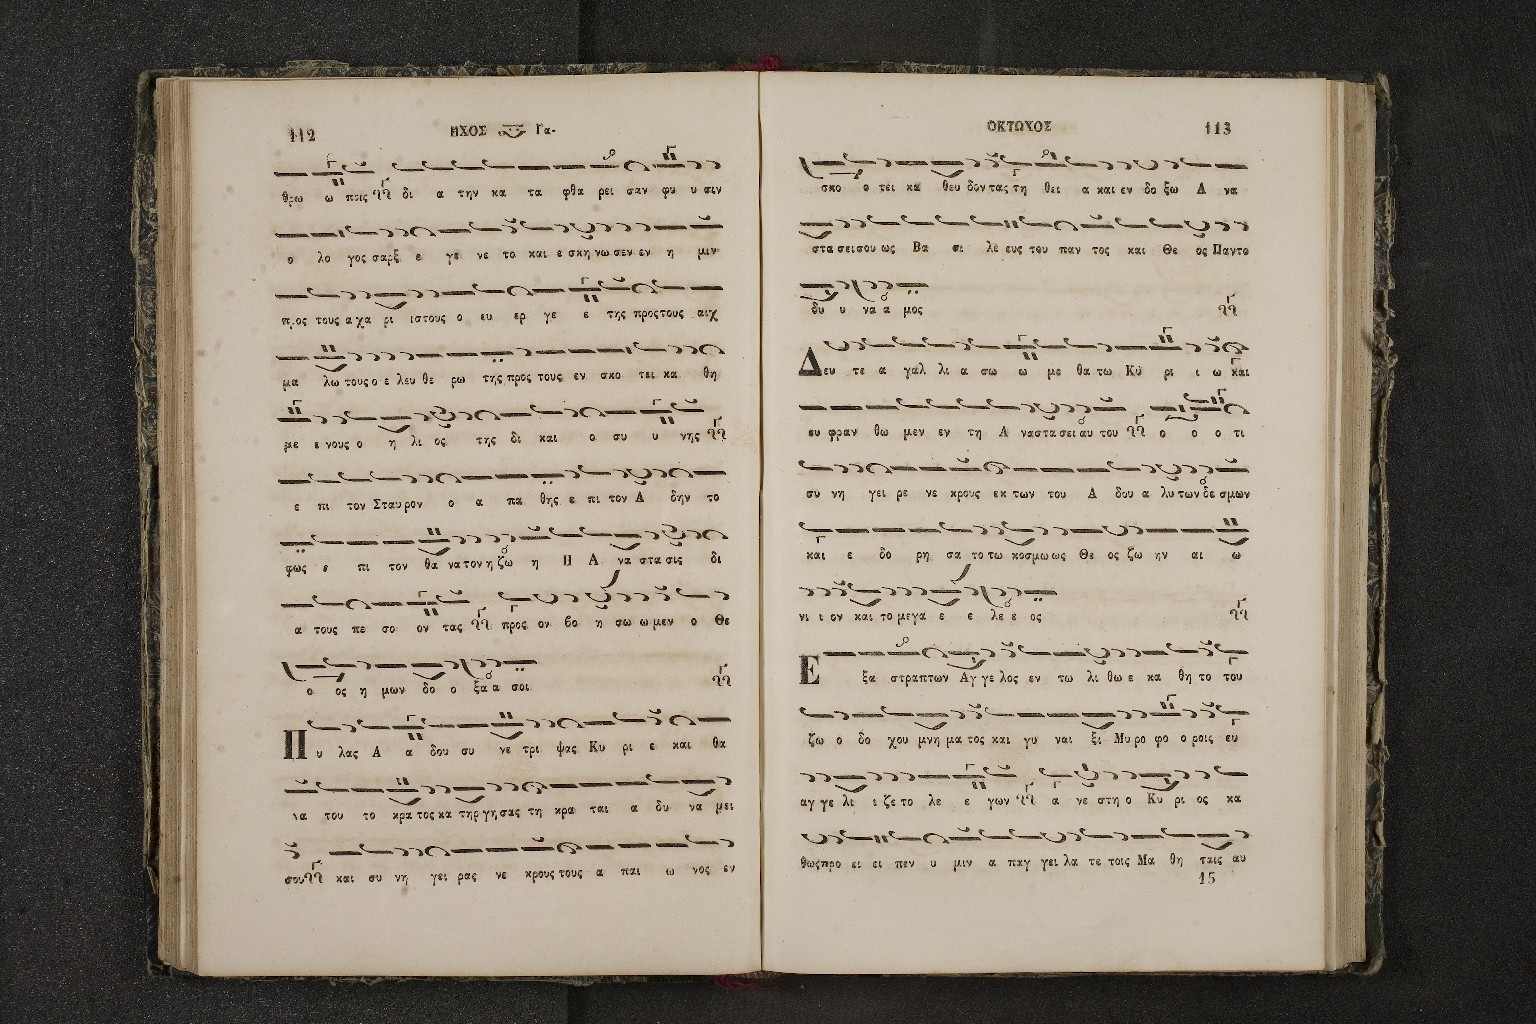 112
ΗΧΟΣ Γα-
θρω ω ποις δι α την κα τα φθα ρει σαν φυ υ σιν
ο λο γος σαρξ ε γε νε το και ε σκη νω σεν εν η μιν
προς τους α χα ρι ιστους ο ευ ερ γε ε της προς τους αιχ
μα λω τους ο ε λευ θε ρω της προς τους εν σκο τει κα θη
με ε νους ο η λι ος της δι και ο συ υ νης
ε πι τον Σταυ ρον ο α πα θης ε πι τον Α δην το
φως ε πι τον θα να τον η ζω η Η Α να στα σις δι
α τους πε σο ον τας προς ον βο η σω ω μεν ο Θε
ο ος η μων δο ο ξα α σοι
Πυ λας Α α δου συ νε τρι ψας Κυ ρι ε και θα
να του το κρα τος κα τηρ γη σας τη κρα ται α δυ να μει
σου και συ νη γει ρας νε κρους τους α παι ω νος εν
ΟΚΤΩΧΟΣ
113
σκο ο τει κα θευ δον τας τη θει α και εν δο ξω Α να
στα σει σου ως Βα σι λε ευς του παν τος και Θε ος Παντο
δυ υ να α μος
Δευ τε α γαλ λι α σω ω με θα τω Κυ ρι ι ω και
ευ φραν θω μεν εν τη Α ναστασει αυ του ο ο ο τι
συ νη γει ρε νε κρους εκ των του Α δου α λυ των δε σμων
και ε δο ρη σα το τω κοσμω ως Θε ος ζω ην αι ω
νι ι ον και το μεγα ε ε λε ε ος
Ε ξα στραπτων Αγ γε λος εν τω λι θω ε κα θη το του
ζω ο δο χου μνη μα τος και γυ ναι ξι Μυ ρο φο ο ροις ευ
αγ γε λι ι ζε το λε ε γων α νε στη ο Κυ ρι ος κα
θωςπρο ει ει πεν υ μιν α παγ γει λα τε τοις Μα θη ταις αυ
15